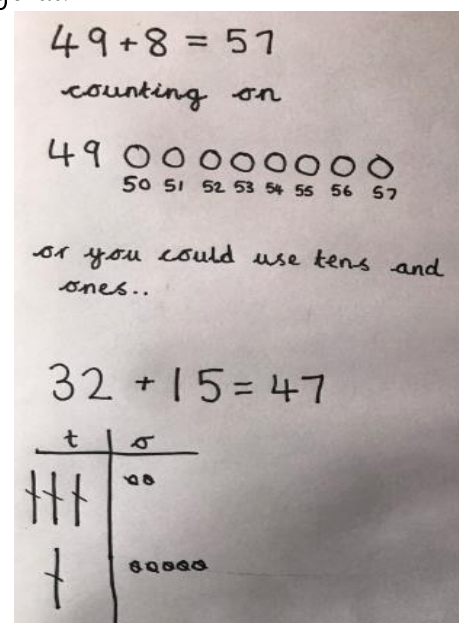 49+8 = 57
counting on
49
50 51 52 53 54 55 56 57
or you could use tens and
ones..
32 + 15 = 47
t o